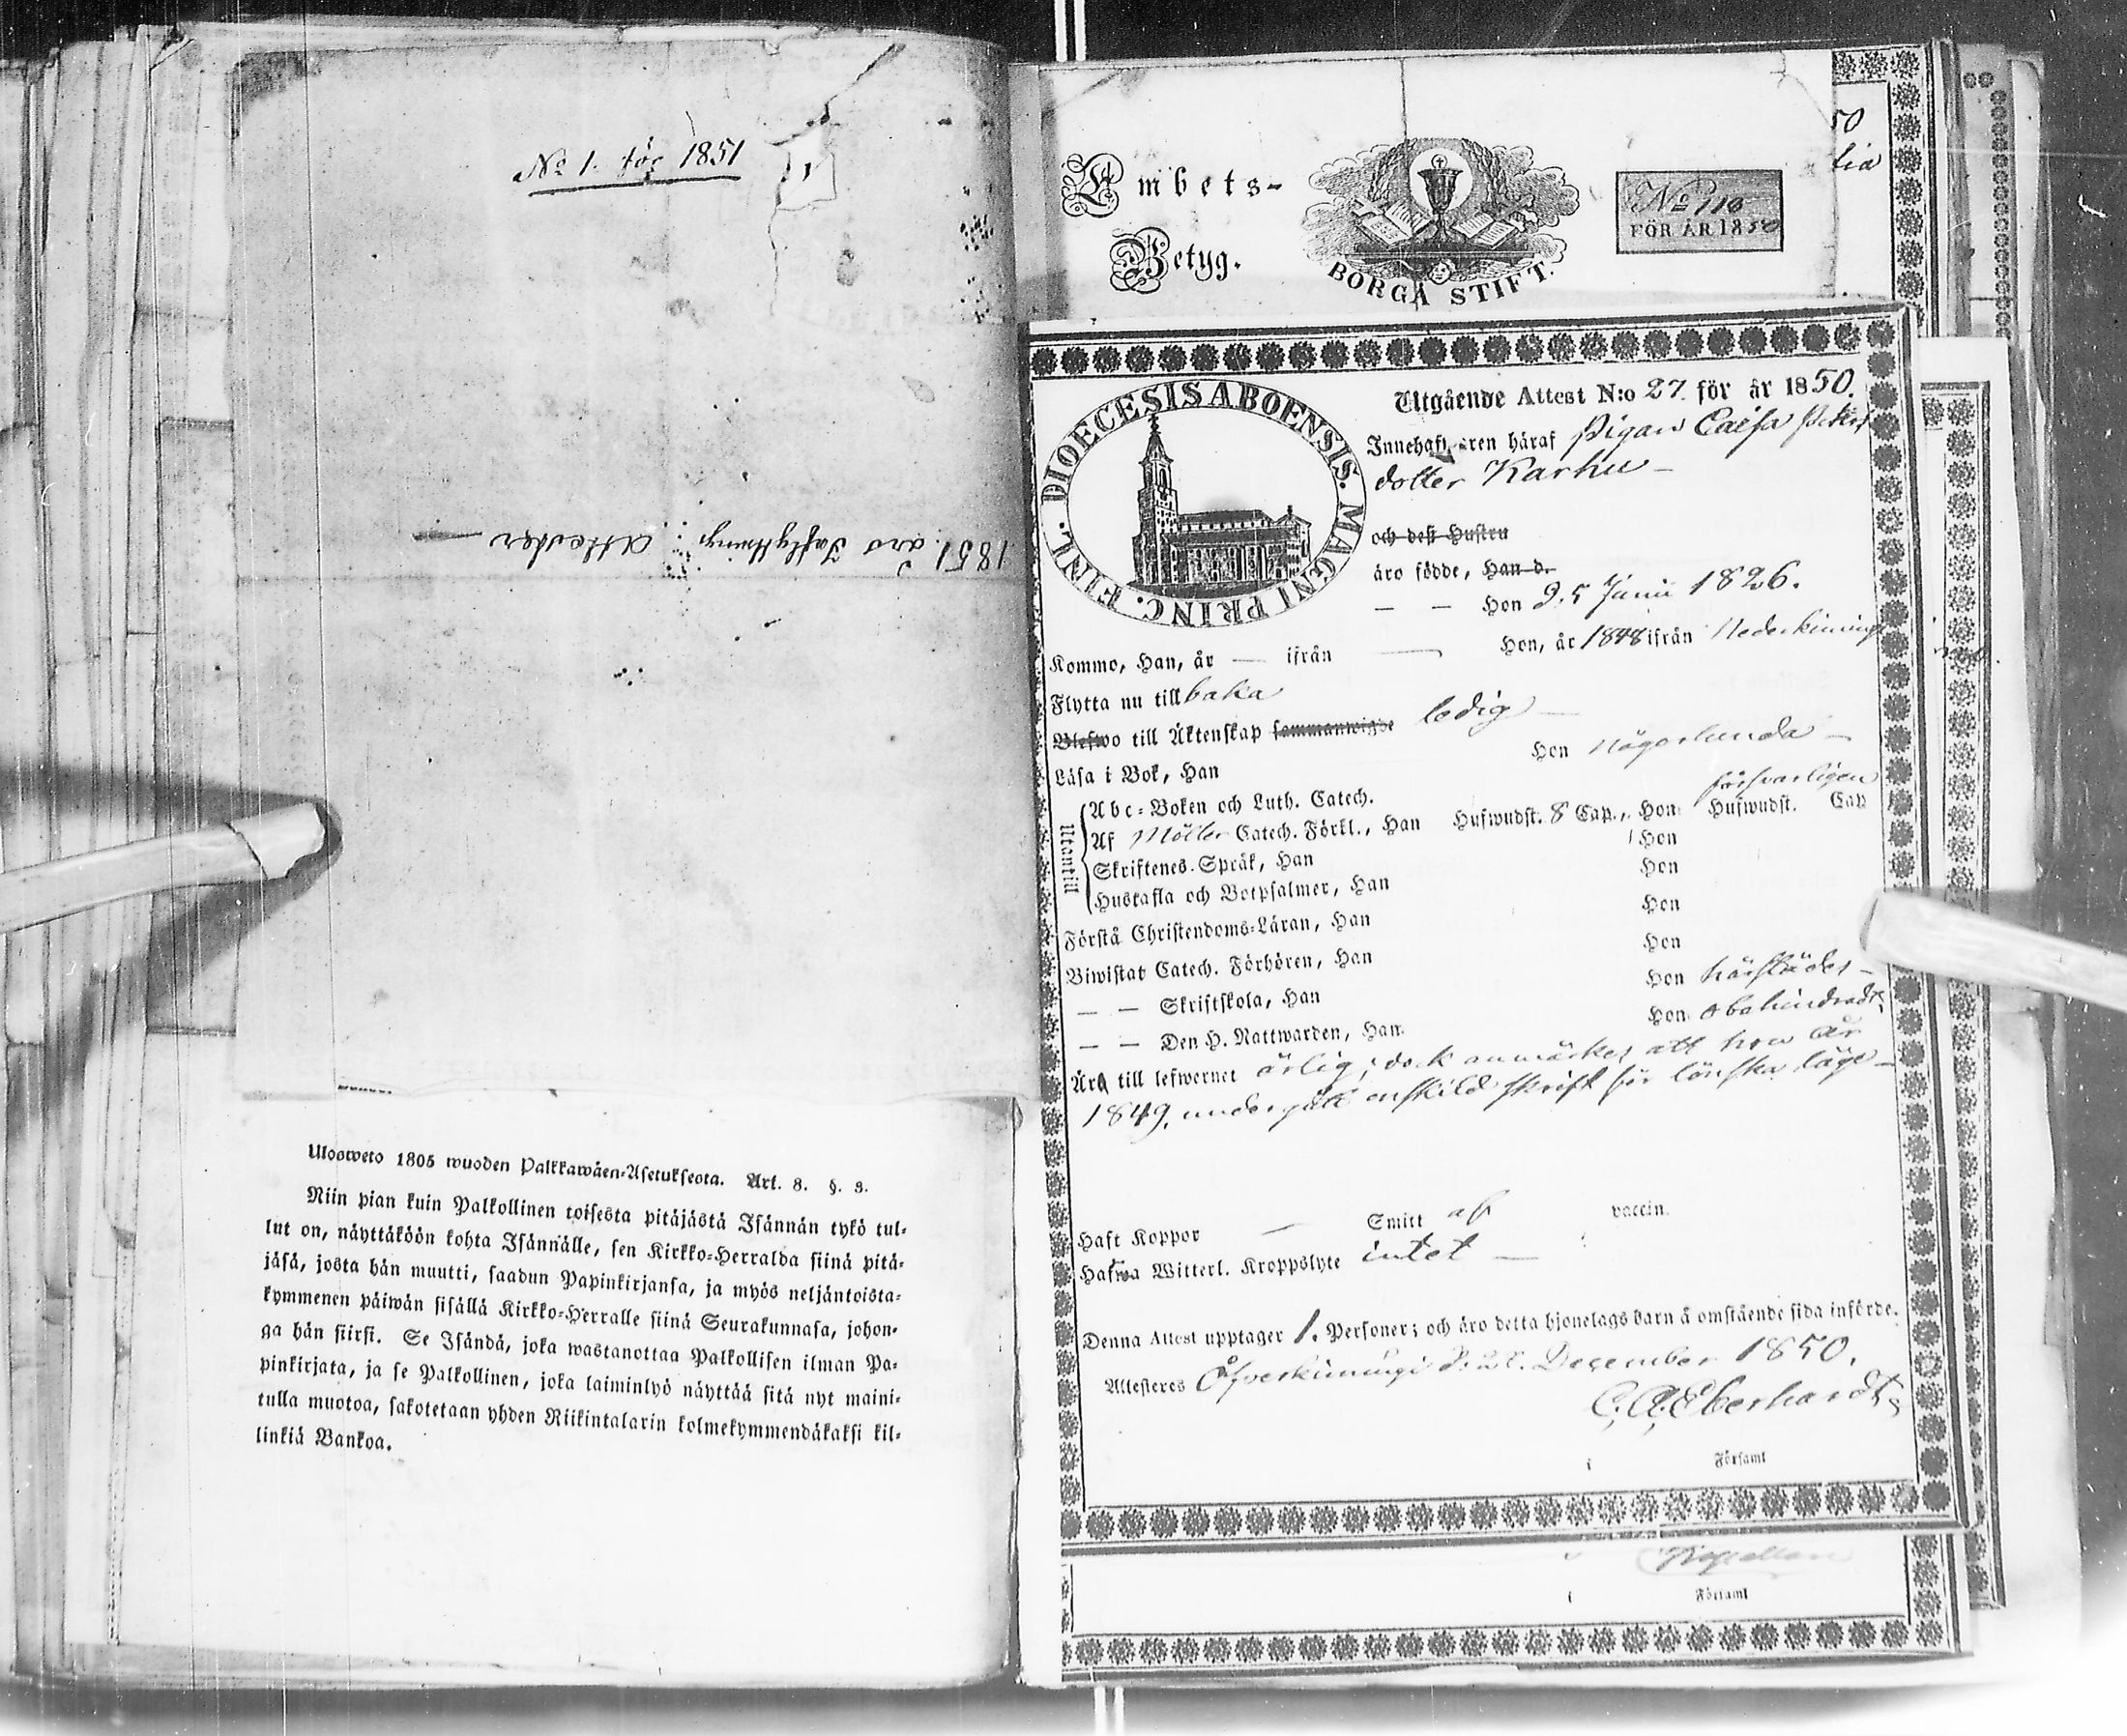 No 1. för 1851
1851 års Inflyttnings Attester
Ulosweto 1805 wuoden Palkkawäen-Asetuksesta. Art. 8. §. 3.
Niin pian kuin Palkollinen toisesta pitäjästä Isännän tykö tul-
lut on, näyttäköön kohta Isännälle, sen Kirkko-Herralda siinä pitä-
jäsä, josta hän muutti, saadun Papinkirjansa, ja myös neljäntoista-
kymmenen päiwän sisällä Kirkko-Herralle siinä Seurakunnasa, johon-
ga hän siirsi. Se Isändä, joka wastanottaa Palkollisen ilman Pa-
pinkirjata, ja se Palkollinen, joka laiminlyö näyttää sitä nyt maini-
tulla muotoa, sakotetaan yhden Riikintalarin kolmekymmendäkaksi kil-
linkiä Bankoa.
Embets-
Betyg.
BORGÅ STIFT.
No 110
FÖR ÅR 1850
50
DIOECESIS ABOENSIS. MAGNI PRINC. FINL.
Utgående Attest N:o 27. för år 1850.
Innehafwaren häraf Pigan Caisa Peters
dotter Karhu
och dess Hustru
äro födde, Han d.
— — Hon d. 5 Junii 1826.
Komme, Han, år — ifrån — Hon, år 1848 ifrån Nederkiminge
Flytta nu till baka
Blefwo till Äktenskap sammanwigde ledig
Läsa i Bok, Han Hon någorlunda
Utantill
Abc-Boken och Luth. Catech. försvarligen
Af Möller Catech. Förkl., Han Hufwudst. 8 Cap., Hon Hufwudst. Cap
Skriftenes Språk, Han Hon
Hustafla och Botpsalmer, Han Hon
Förstå Christendoms-Läran, Han Hon
Biwistat Catech. Förhören, Han Hon
— — Skriftskola, Han Hon härstädes
— — Den H. Nattwarden, Han Hon obehindradt
Är till lefwernet ärlig; dock anmärkes att hon år
1849. undergått enskild skrift för lönskaläge
Haft Koppor — Smitt af vaccin.
Hafwa Witterl. Kroppslyte intet
Denna Attest upptager 1. Personer; och äro detta hjonelags barn å omstående sida införde.
Attesteres Öfverkiminge December 1850.
C. A. Eberhardt
i Församl
Kapellan
i Församl